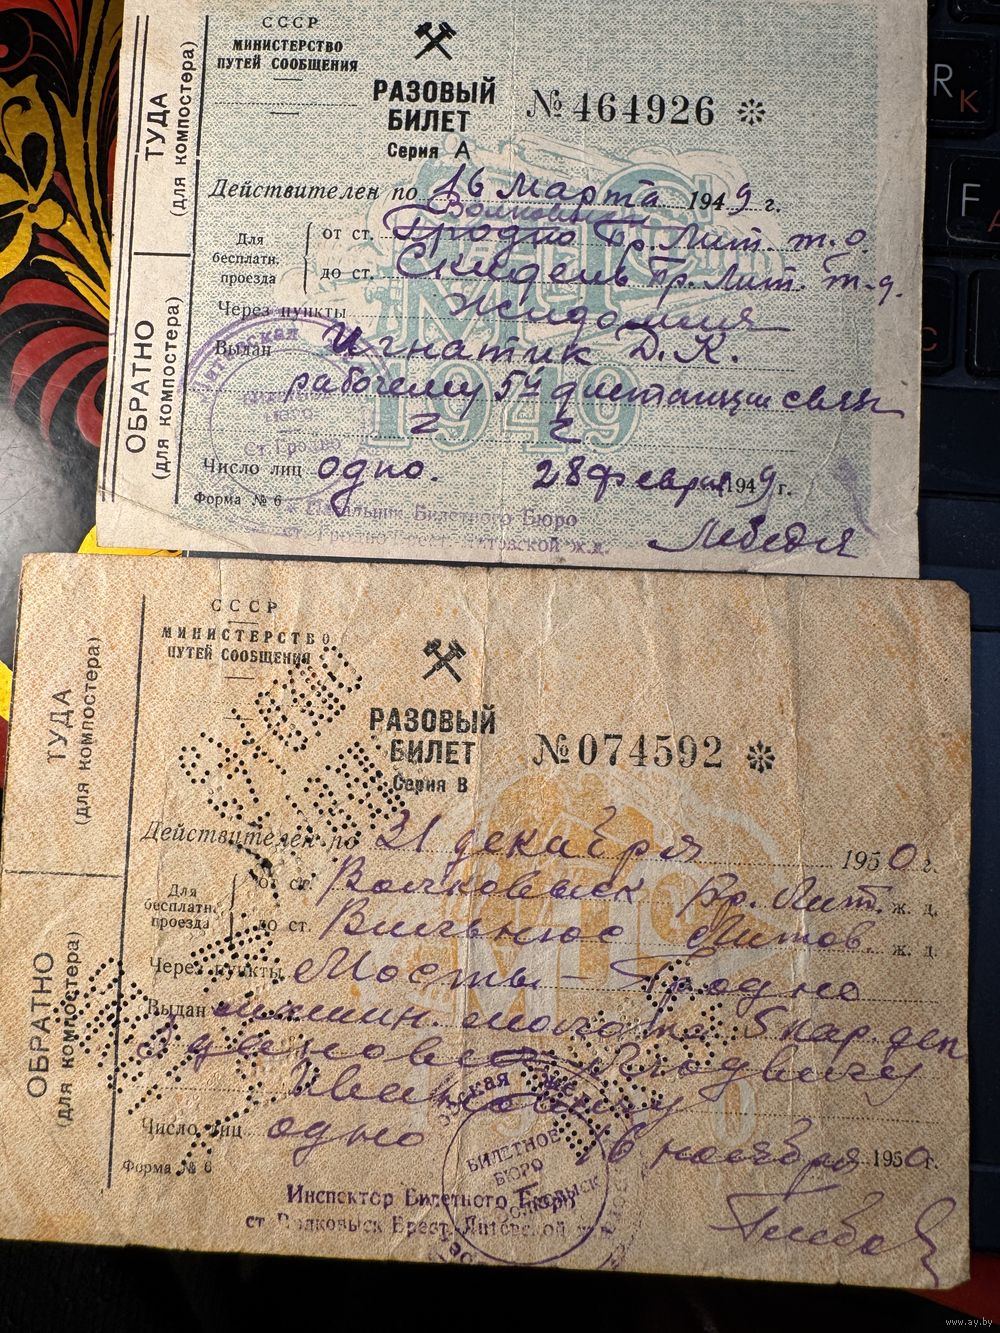 СССР
МИНИСТЕРСТВО
ПУТЕЙ СООБЩЕНИЯ
РАЗОВЫЙ
БИЛЕТ
Серия А
№ 464926
ТУДА
(для компостера)
ОБРАТНО
(для компостера)
Действителен по 16 марта 1949 г.
Волковыск
Для бесплатн. проезда
от ст. Гродно Бр. Лит. ж. д.
до ст. Скидель Бр. Лит. ж. д.
Через пункты Жидомля
Выдан Игнатик Д. К.
рабочему 5й дистанции связи
1949
Число лиц одно. 28 февраля 1949 г.
Форма № 6
Начальник Билетного Бюро
ст. Гродно Брест-Литовской ж.д.
СССР
МИНИСТЕРСТВО
ПУТЕЙ СООБЩЕНИЯ
РАЗОВЫЙ
БИЛЕТ
Серия В
№ 074592
ТУДА
(для компостера)
ОБРАТНО
(для компостера)
Действителен по 31 декабря 1950 г.
Для бесплатн. проезда
от ст. Волковыск Бр. Лит. ж. д.
до ст. Вильнюс Литов. ж. д.
Через пункты Мосты - Гродно
Выдан
Число лиц одно 16 ноября 1950 г.
Форма № 6
БИЛЕТНОЕ
БЮРО
Инспектор Билетного Бюро
ст. Волковыск Брест-Литовской
www.ay.by